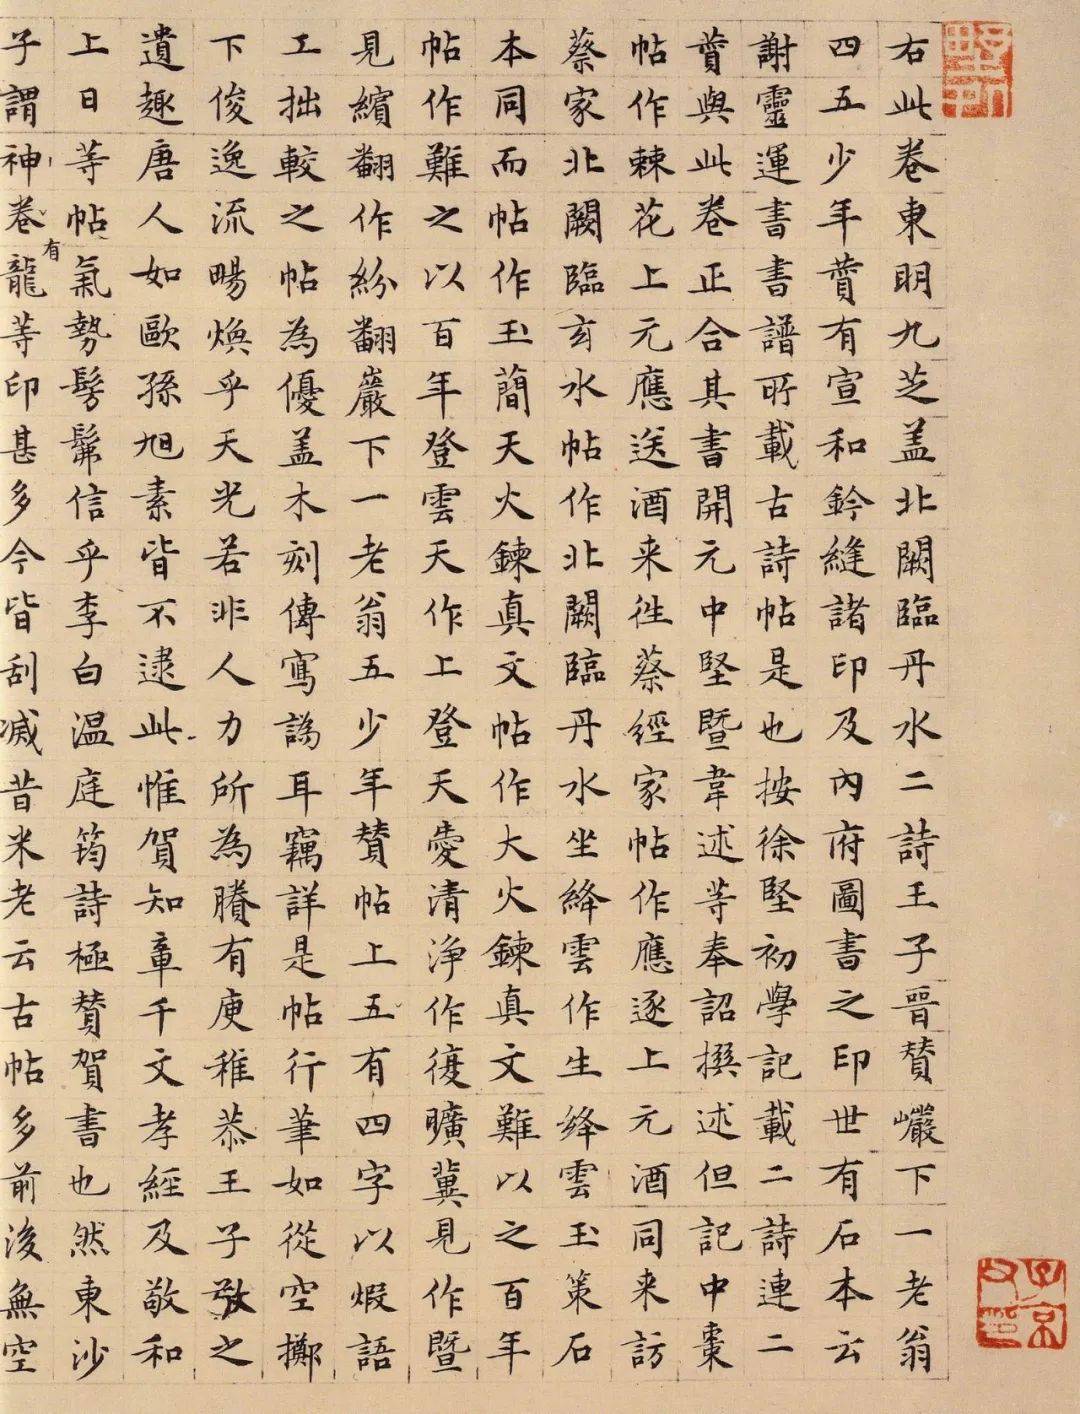 右此卷東明九芝盖北闕臨丹水二詩王子晉贊巖下一老翁
四五少年贊有宣和鈐縫諸印及內府圖書之印世有石本云
謝靈運書書譜所載古詩帖是也按徐堅初學記載二詩連二
賛與此卷正合其書開元中堅暨韋述等奉詔撰述但記中棗
帖作棘花上元應送酒来徃蔡經家帖作應逐上元酒同来訪
蔡家北闕臨玄水帖作北闕臨丹水坐絳雲作生絳雲玉策石
本同而帖作玉簡天火鍊真文帖作大火鍊真文難以之百年
帖作難之以百年登雲天作上登天愛清淨作復曠冀見作暨
見繽翻作紛翻巖下一老翁五少年贊帖上五有四字以煆語
工拙較之帖為優盖木刻傳寫譌耳竊詳是帖行筆如從空擲
下俊逸流暢煥乎天光若非人力所為賸有庾稚恭王子敬之
遺趣唐人如歐孫旭素皆不逮此惟賀知章千文孝經及敬和
上日等帖氣勢髣髴信乎李白温庭筠詩極贊賀書也然東沙
子謂神卷有龍等印甚多今皆刮滅昔米老云古帖多前後無空